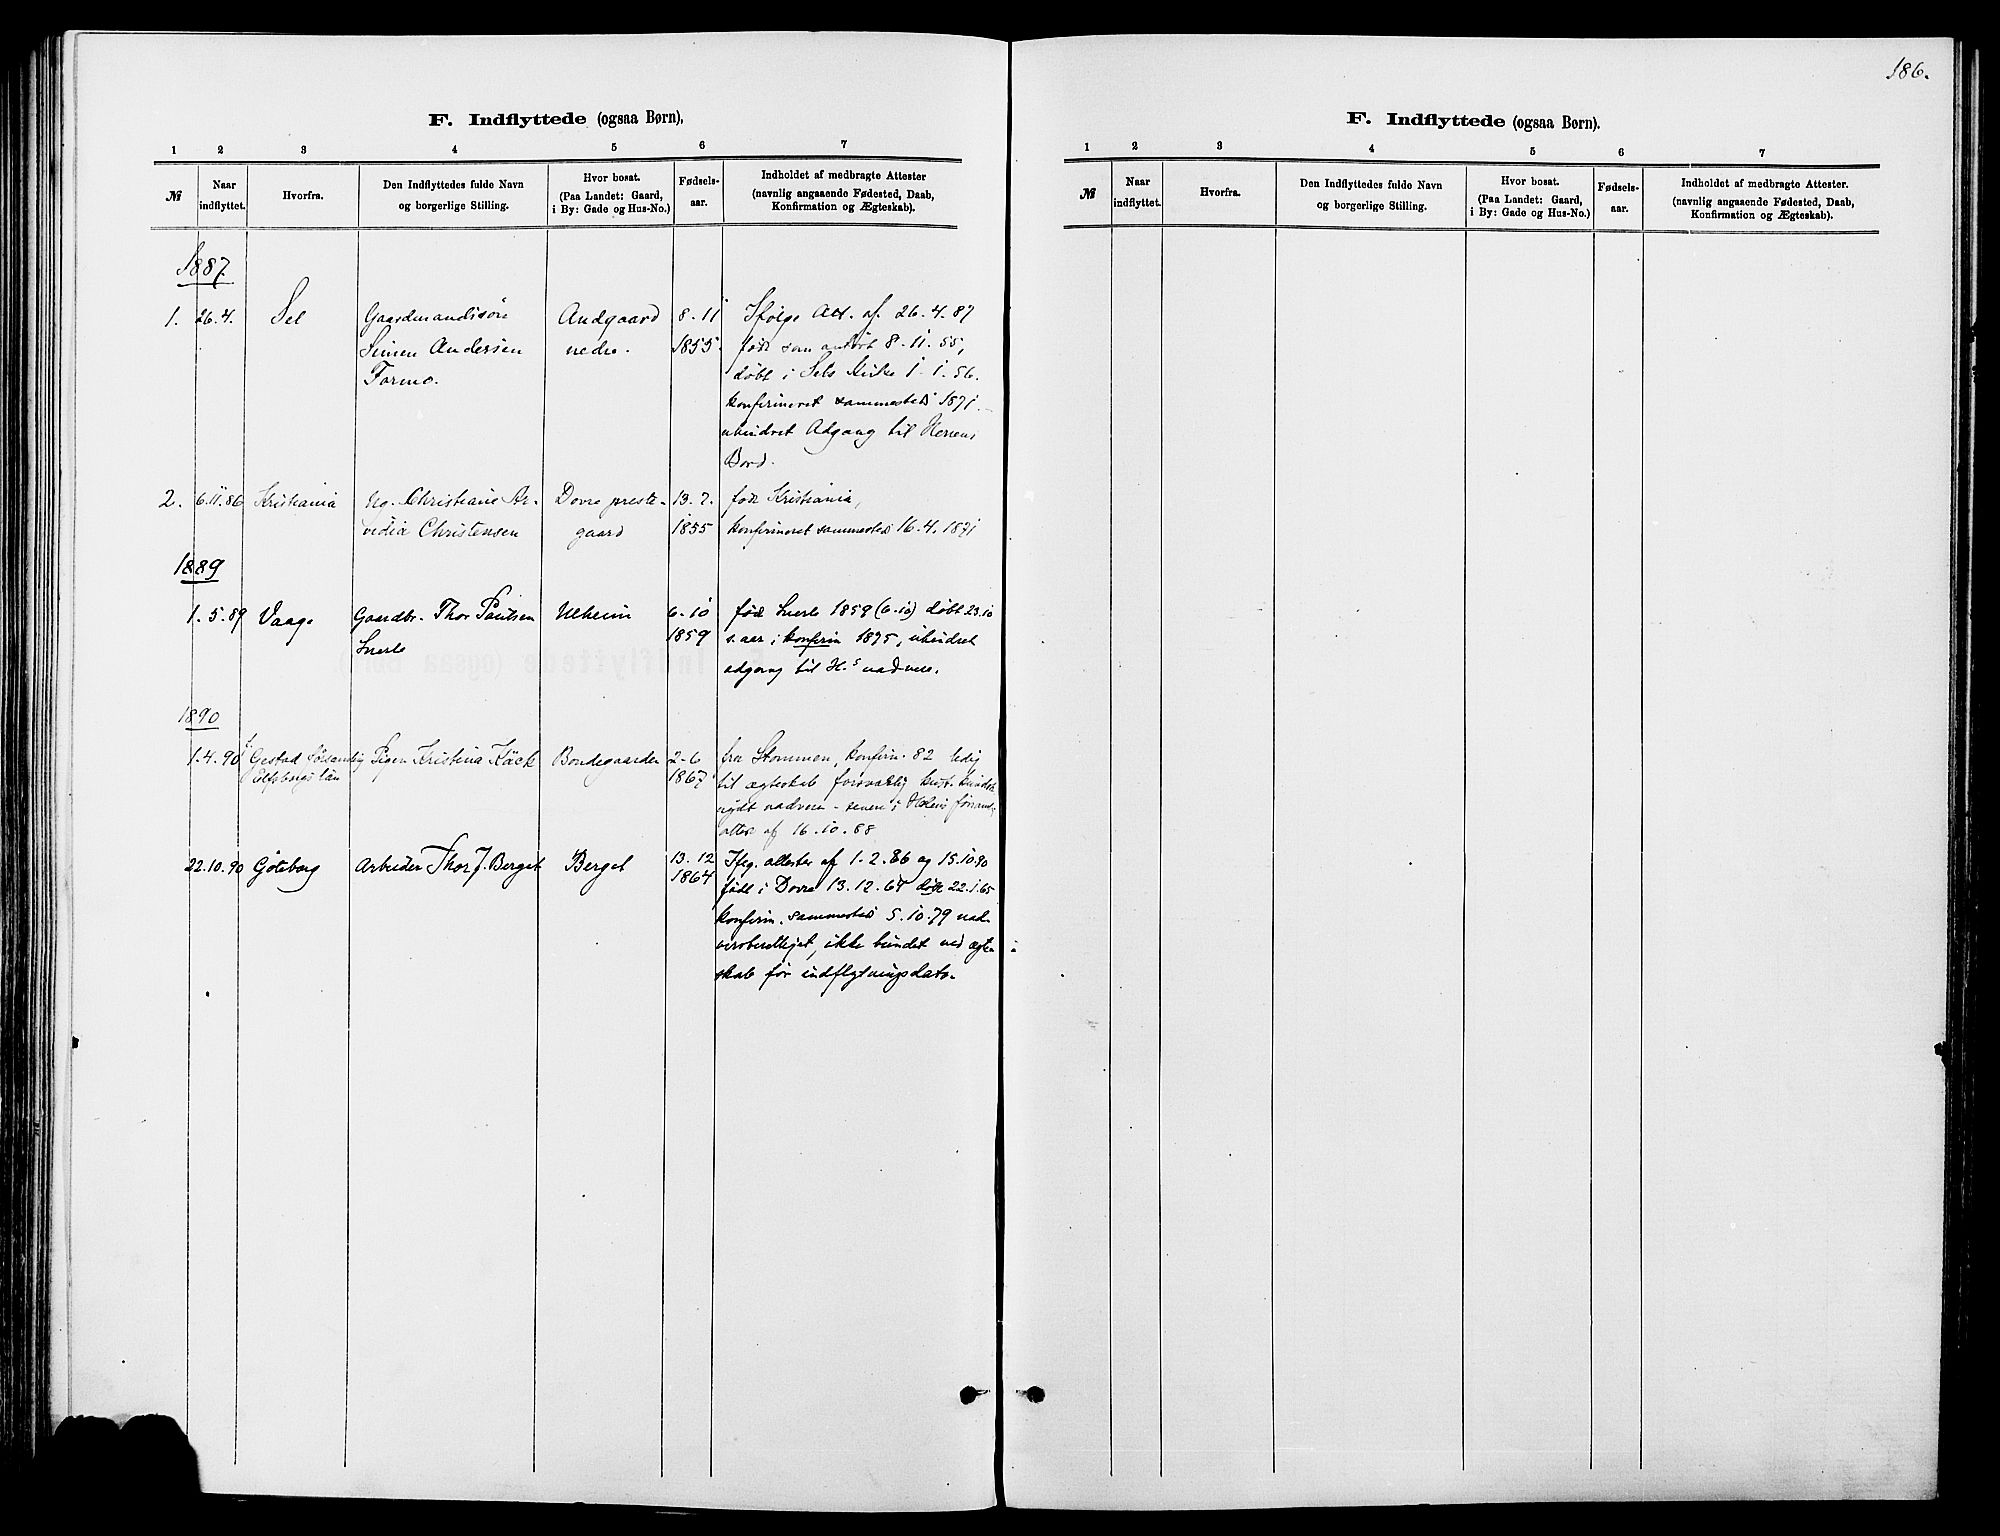 186.
F. Indflyttede (ogsaa Børn),
1 2 3 4 5 6 7
№
Naar indflyttet.
Hvorfra.
Den Indflyttedes fulde Navn
og borgerlige Stilling.
Hvor bosat.
(Paa Landet: Gaard,
i By: Gade og Hus-No.)
Fødsels-
aar.
Indholdet af medbragte Attester
(navnlig angaaende Fødested, Daab,
Konfirmation og Ægteskab).
1887.
1. 26.4. Sel Gaardmandssön Andgaard 8-11 Ifølge Att. af 26.4.87
Simen Andersen nedre. 1855. född som anfört 8-11-55,
Formo. døbt i Sels Kirke 1-1-56.
konfirmeret sammesteds 1871
uhindret Adgang til Herrens
Bord.
2. 6.11.86 Kristiania Ug. Christiane Ar- Dovre preste- 13.7. född Kristiania,
vidia Christensen gaard 1855 konfirmeret sammesteds 16.4.1871
1889
1.5.89 Vaage Gaardbr. Thor Paulsen Ulheim 6-10 född Snerle 1859 (6-10) døbt 23.10
Snerle 1859 s. aar, konfirm 1875, uhindret
adgang til H.s nadvere.
1890
1.4.90 Gestad Pigen Kristina Käck Bondegaarden 2-6 fra Stommen, konfirm. 82 ledig
Elfsborgs län 1867 til ægteskab
nydt nadvere - senere i
attest af 16.10.88
22.10.90 Göteborg Arbeider Thor J. Berget Berget 13.12 Ifög. attester af 1.2.86 og 15.10.90
1864 född i Dovre 13.12.64 døbt 22.1.65
konfirm. sammesteds 5.10.79 nad-
verberettiget, ikke bundet ved ægte-
skab før indflytningsdato.
F. Indflyttede (ogsaa Børn).
1 2 3 4 5 6 7
№
Naar
indflyttet.
Hvorfra.
Den Indflyttedes fulde Navn
og borgerlige Stilling.
Hvor bosat.
(Paa Landet: Gaard,
i By: Gade og Hus-No.)
Fødsels-
aar.
Indholdet af medbragte Attester.
(navnlig angaaende Fødested, Daab,
Konfirmation og Ægteskab).